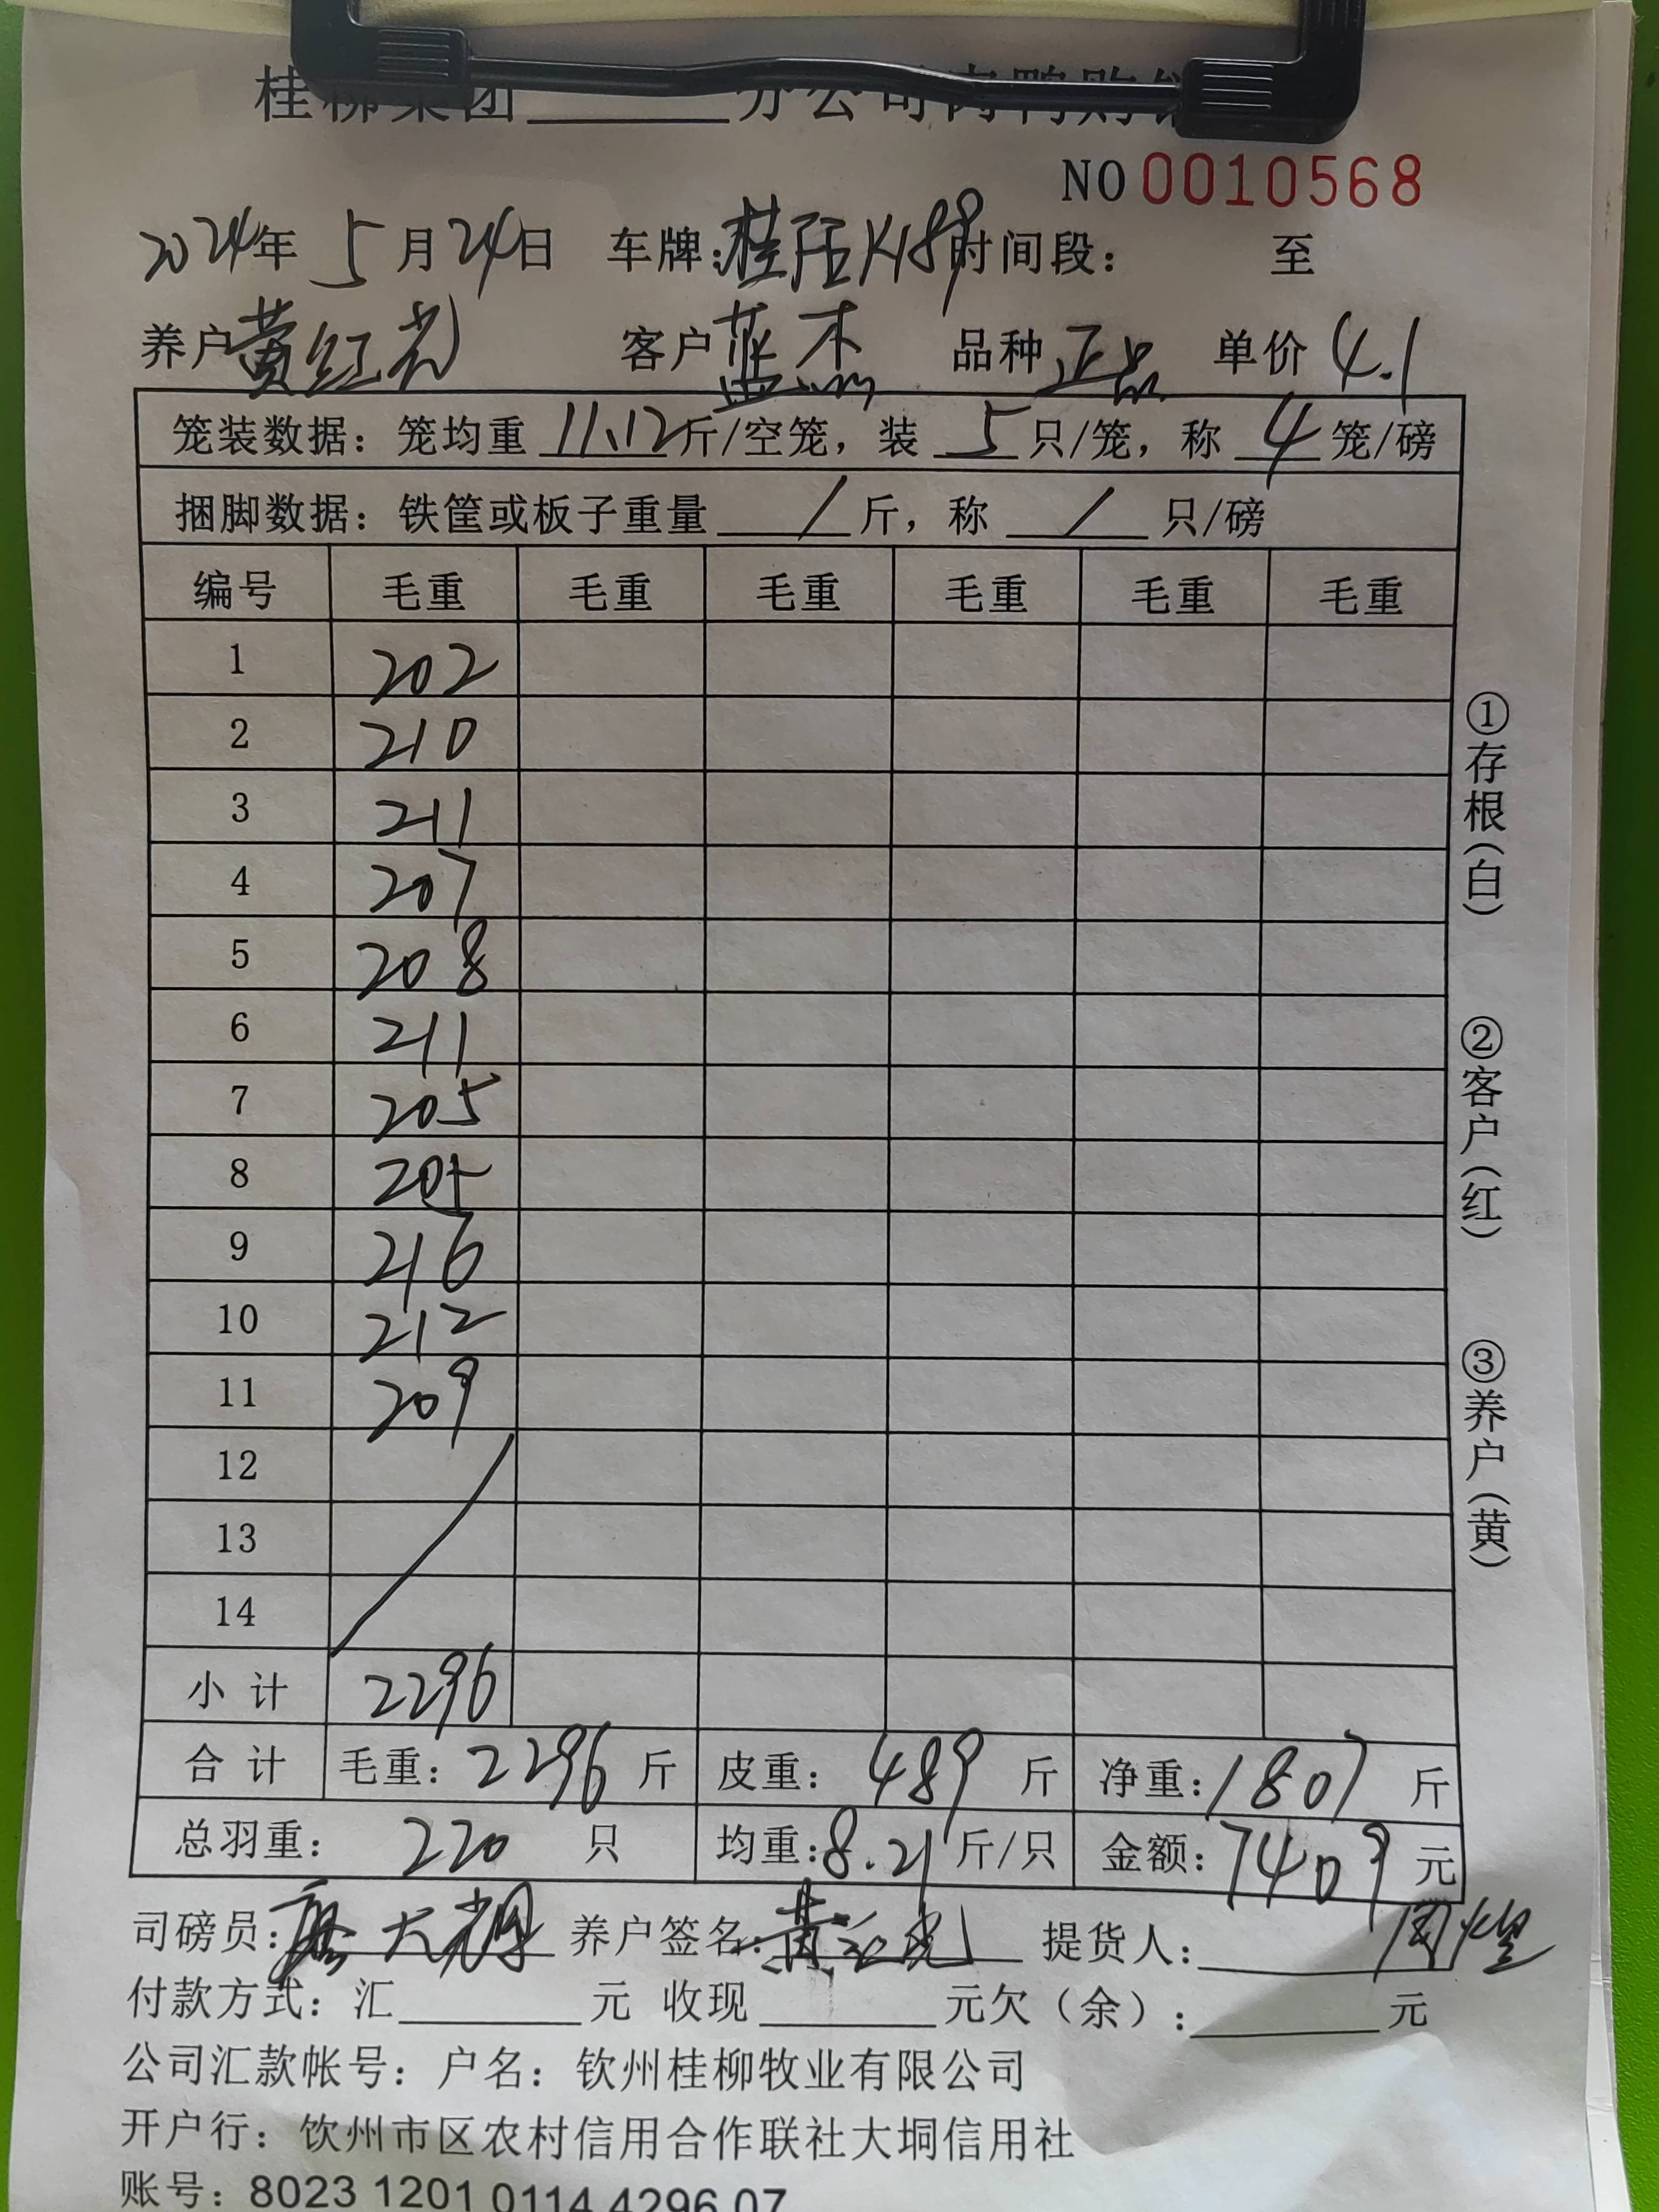 桂柳集团 分公司肉鸭购销
NO 0010568
2024年 5月24日 车牌: 时间段: 至
养户 黄红光 客户 蓝杰 品种 正品 单价 4.1
笼装数据: 笼均重 11.12斤/空笼, 装 5 只/笼, 称 4 笼/磅
捆脚数据: 铁筐或板子重量 / 斤, 称 / 只/磅
编号 毛重 毛重 毛重 毛重 毛重 毛重
1 202
2 210
3 211
4 207
5 208
6 211
7 205
8 205
9 216
10 212
11 209
12
13
14
小计 2296
合计 毛重: 2296 斤 皮重: 489 斤 净重: 1807 斤
总羽重: 220 只 均重: 8.21 斤/只 金额: 7409 元
司磅员: 养户签名: 黄红光 提货人:
付款方式: 汇 元 收现 元欠(余): 元
公司汇款帐号: 户名: 钦州桂柳牧业有限公司
开户行: 钦州市区农村信用合作联社大垌信用社
账号: 8023 1201 0114 4296 07
①存根(白)
②客户(红)
③养户(黄)